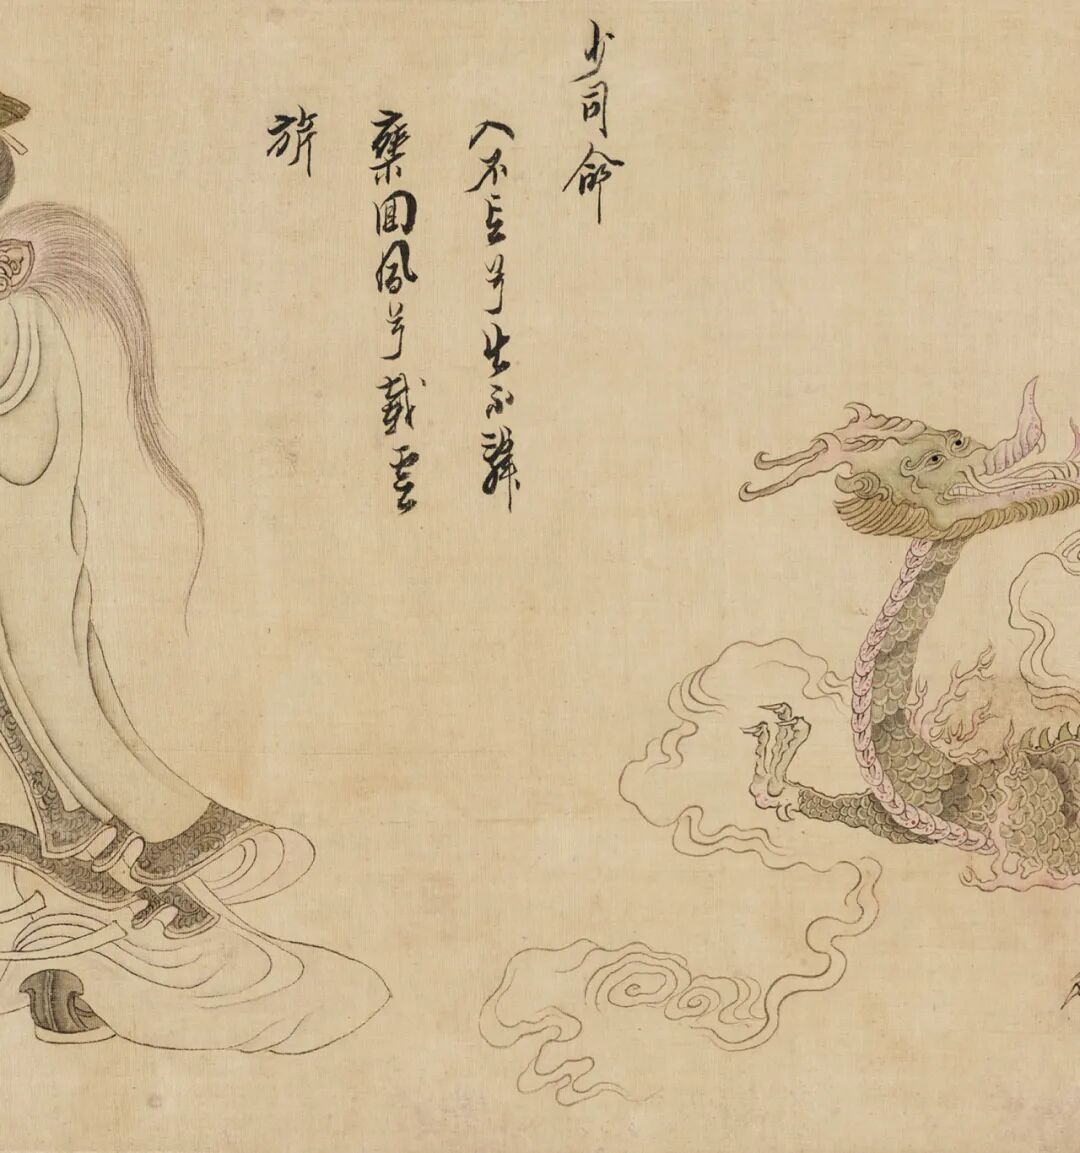 少司命
入不言兮出不辭
乘回風兮載雲
旂